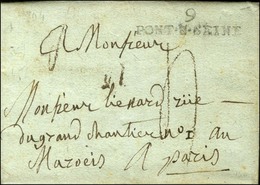 9
PONT-S-SEINE
A Monsieur
Monsieur lienard rüe
du grand chantier no 1 au
Marais A paris